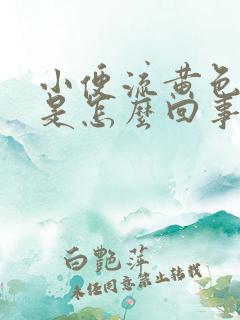 小便流黄色
是怎麽回事
白艷萍
未经同意禁止转载